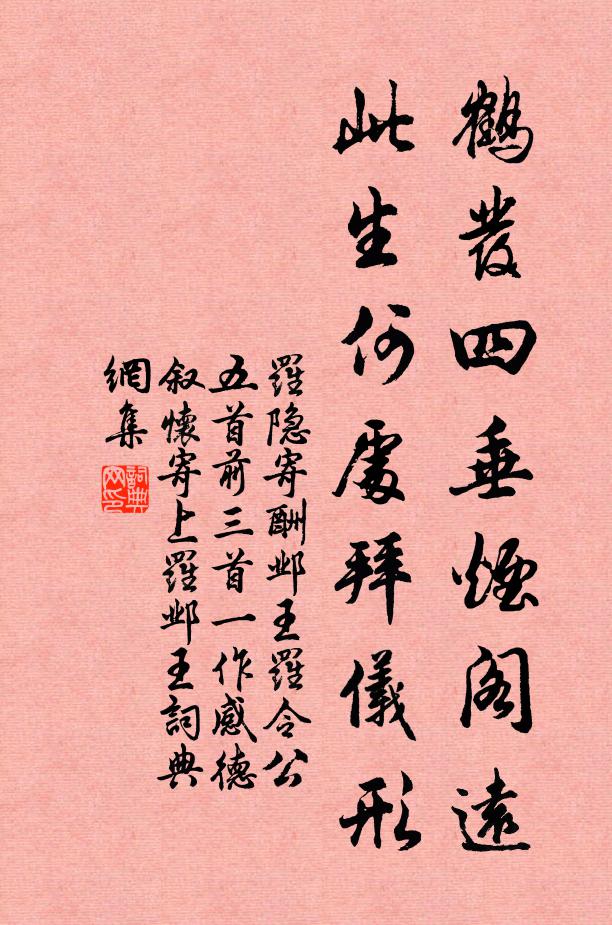 鶴發四垂煙閣遠
此生何處拜儀形
羅隐寄酬邺王羅令公
五首前三首一作感德
叙懷寄上羅邺王詞典
網集
詞典網印